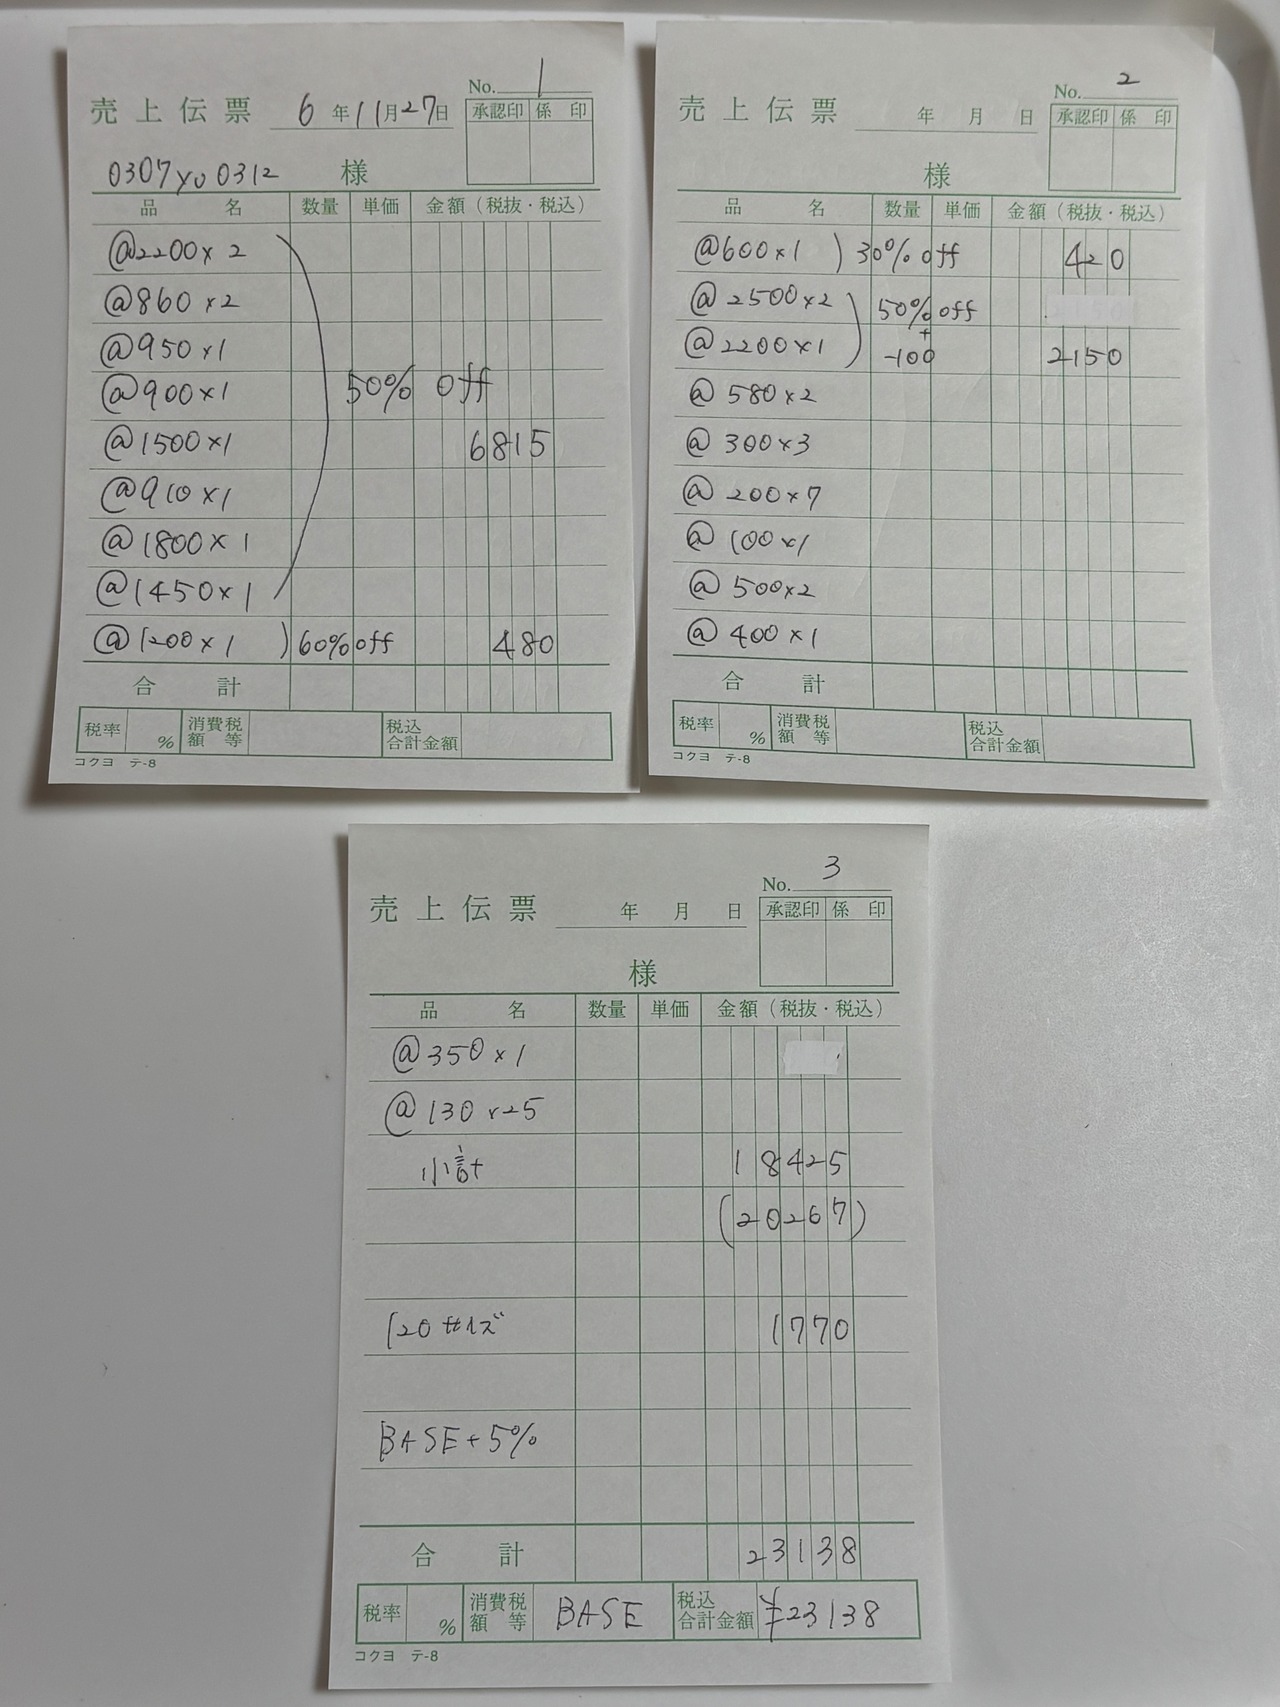 No. 1
売上伝票 6年11月27日
承認印 係印
0307yu0312 様
品名 数量 単価 金額（税抜・税込）
@2200×2
@860×2
@950×1
@900×1 50% off
@1500×1 6815
@910×1
@1800×1
@1450×1
@1200×1 ) 60%off 480
合計
税率 % 消費税額等 税込合計金額
コクヨ テ-8
No. 2
売上伝票 年 月 日
承認印 係印
様
品名 数量 単価 金額（税抜・税込）
@600×1 ) 30% off 420
@2500×2 50% off
@2200×1 + -100 2150
@580×2
@300×3
@200×7
@100×1
@500×2
@400×1
合計
税率 % 消費税額等 税込合計金額
コクヨ テ-8
No. 3
売上伝票 年 月 日
承認印 係印
様
品名 数量 単価 金額（税抜・税込）
@350×1
@130×25
小計 18425
(20267)
120サイズ 1770
BASE+5%
合計 23138
税率 % 消費税額等 BASE 税込合計金額 ¥23138
コクヨ テ-8